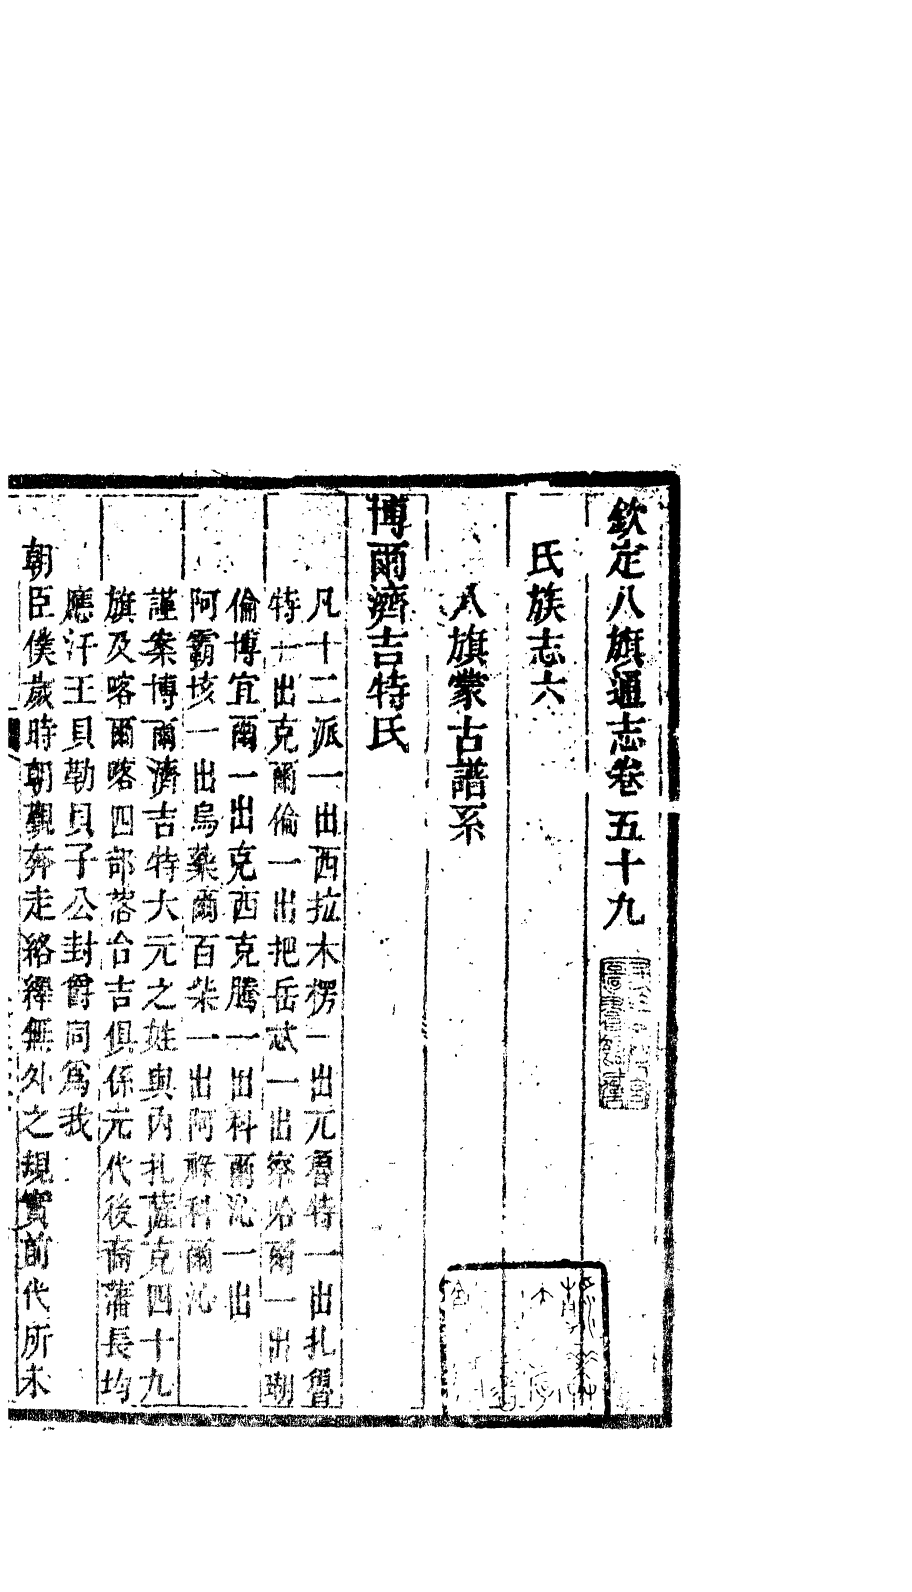 欽定八旗通志卷五十九
氏族志六
八旗蒙古譜系
博爾濟吉特氏
凡十二派一出西拉木楞一出兀魯特一出扎魯
特一出克爾倫一出把岳忒一出察哈爾一出瑚
倫博宜爾一出克西克騰一出科爾沁一出
阿霸垓一出烏藥爾百柴一出阿祿科爾沁
謹案博爾濟吉特大元之姓與內扎薩克四十九
旗及喀爾喀四部落台吉俱係元代後裔藩長均
應汗王貝勒貝子公封爵同爲我
朝臣僕歲時朝覲奔走絡繹無外之規實前代所未